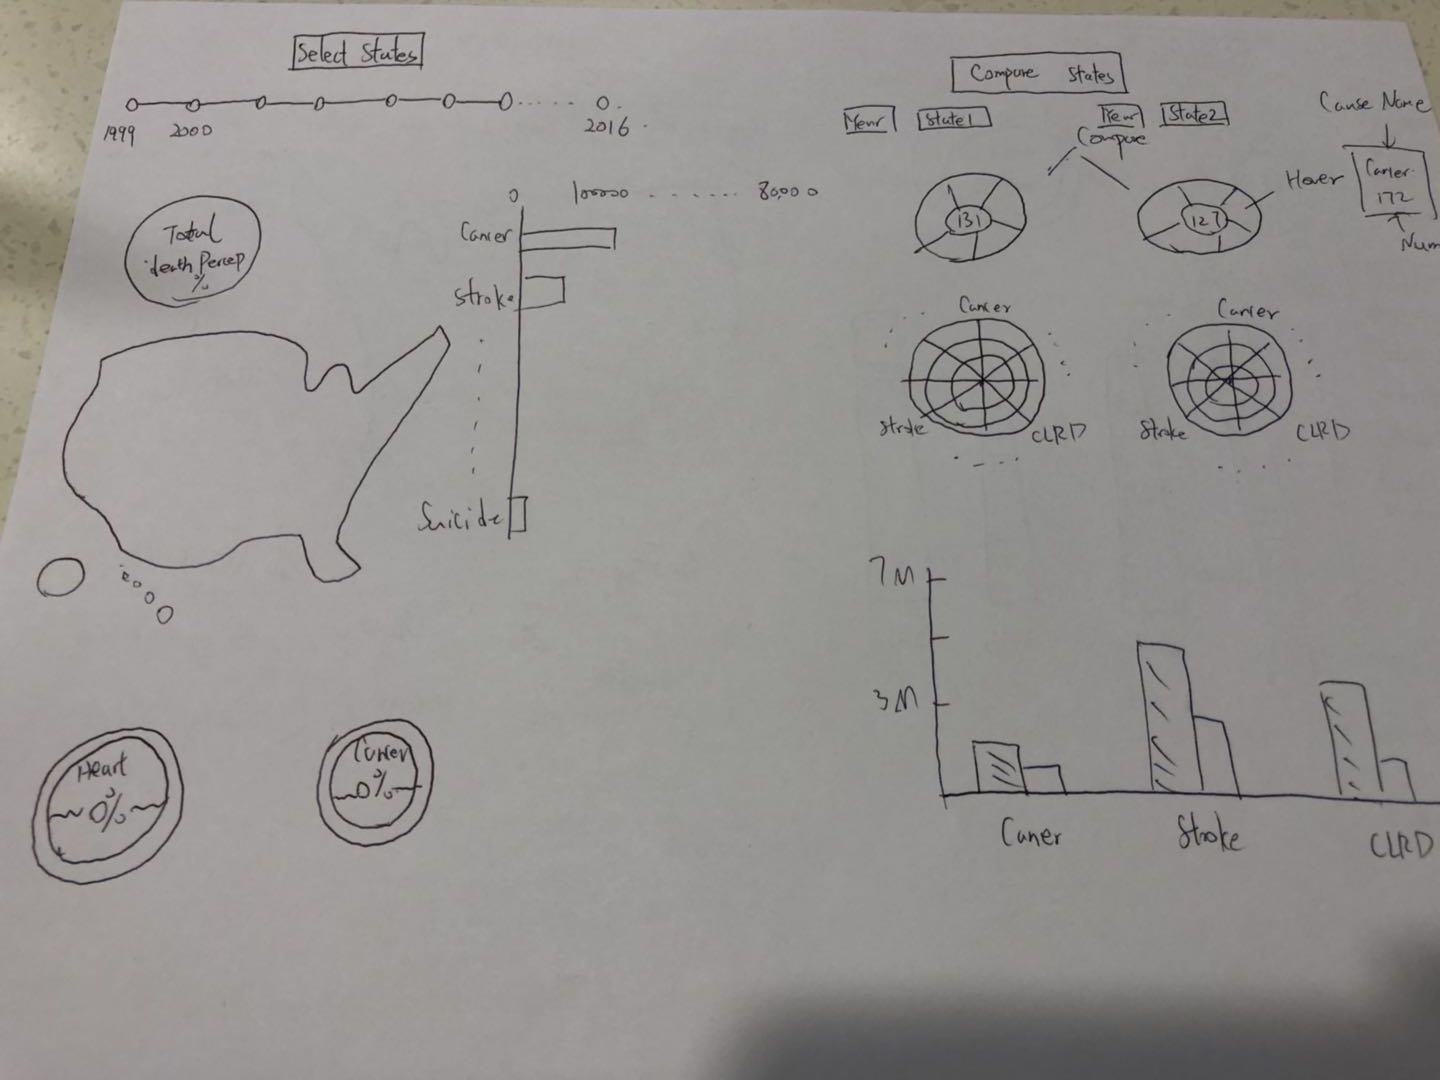 Select States
1999
2000
2016
Total
death Percep
%
0
100000
80,000
Cancer
Stroke
Suicide
Heart
0%
Cancer
0%
Compare States
State1
State2
Compare
131
127
Hover
Cause Name
Cancer
172
Num
Cancer
Stroke
CLRD
Cancer
Stroke
CLRD
7M
3M
Caner
Stroke
CLRD